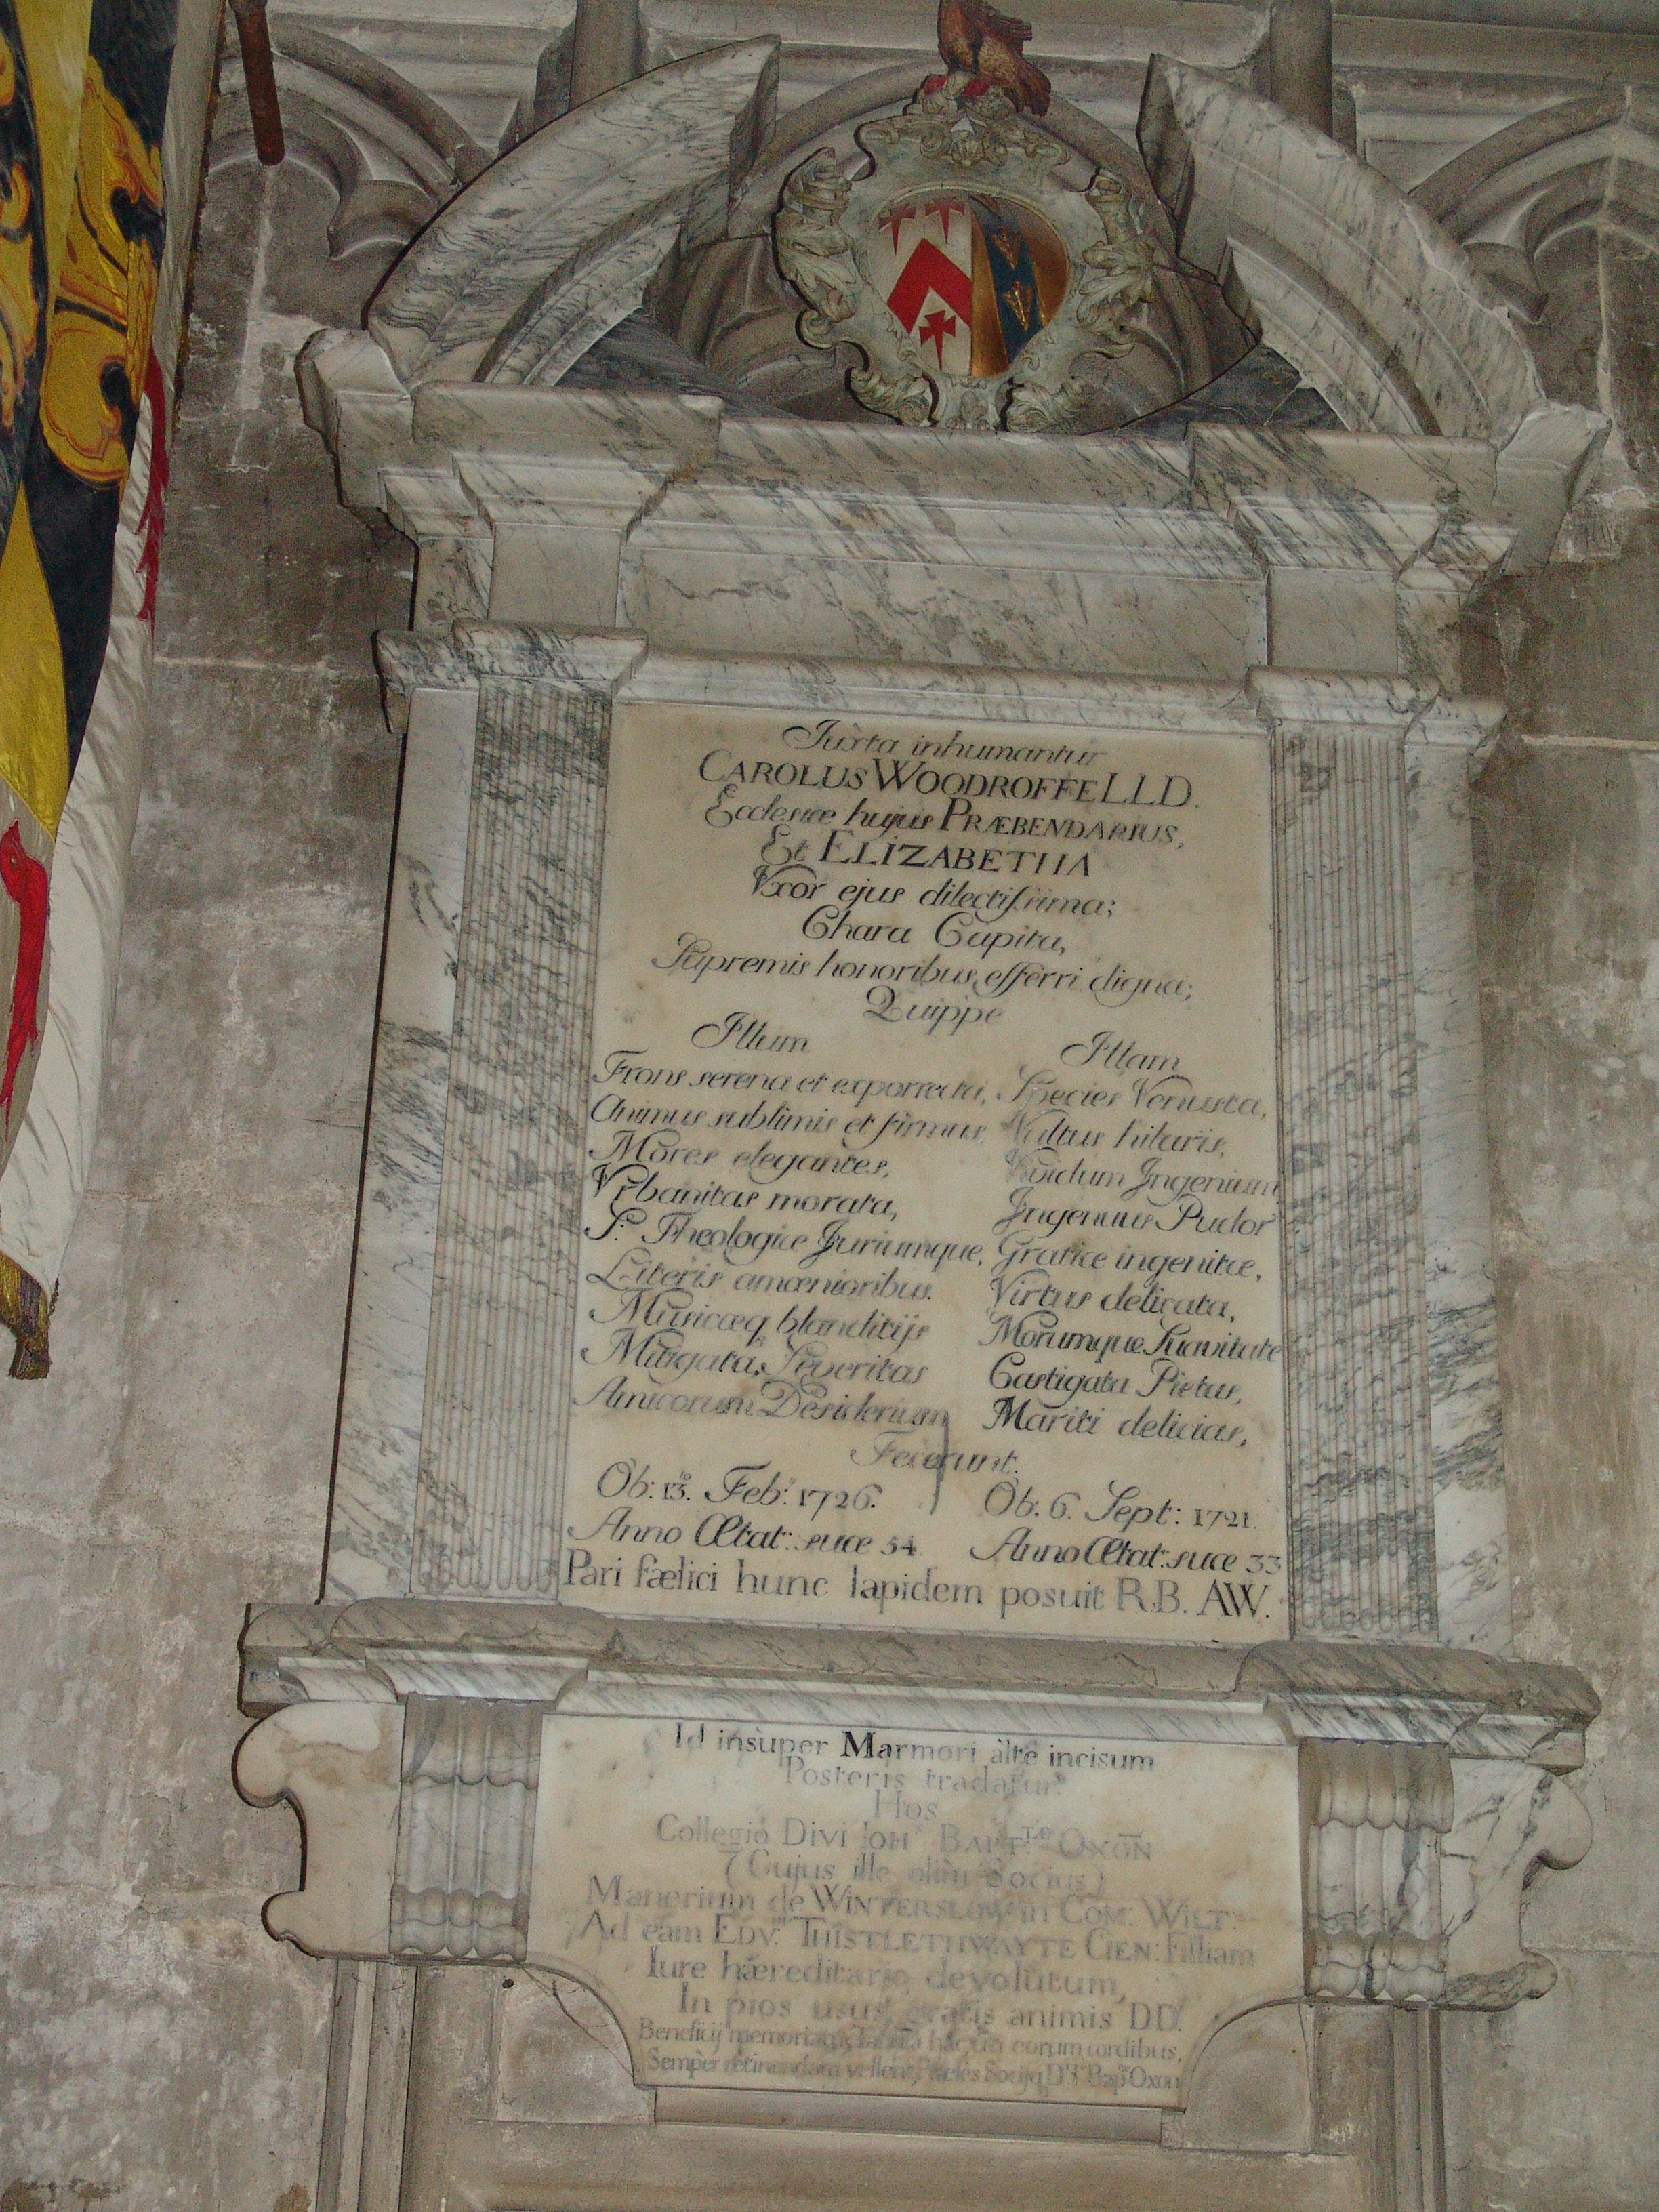 Juxta inhumantur
CAROLUS WOODROFFE LLD.
Ecclesiæ hujus PRÆBENDARIUS,
Et ELIZABETHA
Vxor ejus dilectissima;
Chara Capita,
Supremis honoribus efferri digna;
Quippe
Illum
Frons serena et exporrecta,
Animus sublimis et firmus
Mores elegantes,
Vrbanitas morata,
S. Theologiæ Juriumque,
Literis amœnioribus.
Musicæq blanditijs
Mitigata Severitas
Amicorum Desiderium
Illam
Species Venusta,
Vultus hilaris,
Ingenium
Ingenuus Pudor
Gratiæ ingenitæ,
Virtus delicata,
Morumque Suavitate
Castigata Pietas,
Mariti delicias,
Fecerunt.
Ob: 13.º Feb: 1726.
Anno Ætat: suæ 54
Ob. 6. Sept: 1721.
Anno Ætat: suæ 33
Pari fælici hunc lapidem posuit R.B. AW.
Id insuper Marmori alte incisum
Posteris tradatur
Hos
Collegio DIVI IOH BAPT.TÆ OXON
(Cujus ille olim Socius)
Manerium de WINTERSLOW in COM: WILT:
Ad eam EDV: THISTLETHWAYTE GEN: Filiam
Iure hæreditario devolutum,
In pios usus gratis animis DD.
Beneficij memoriam hac corum cordibus,
Semper retinendam vellent Oxon